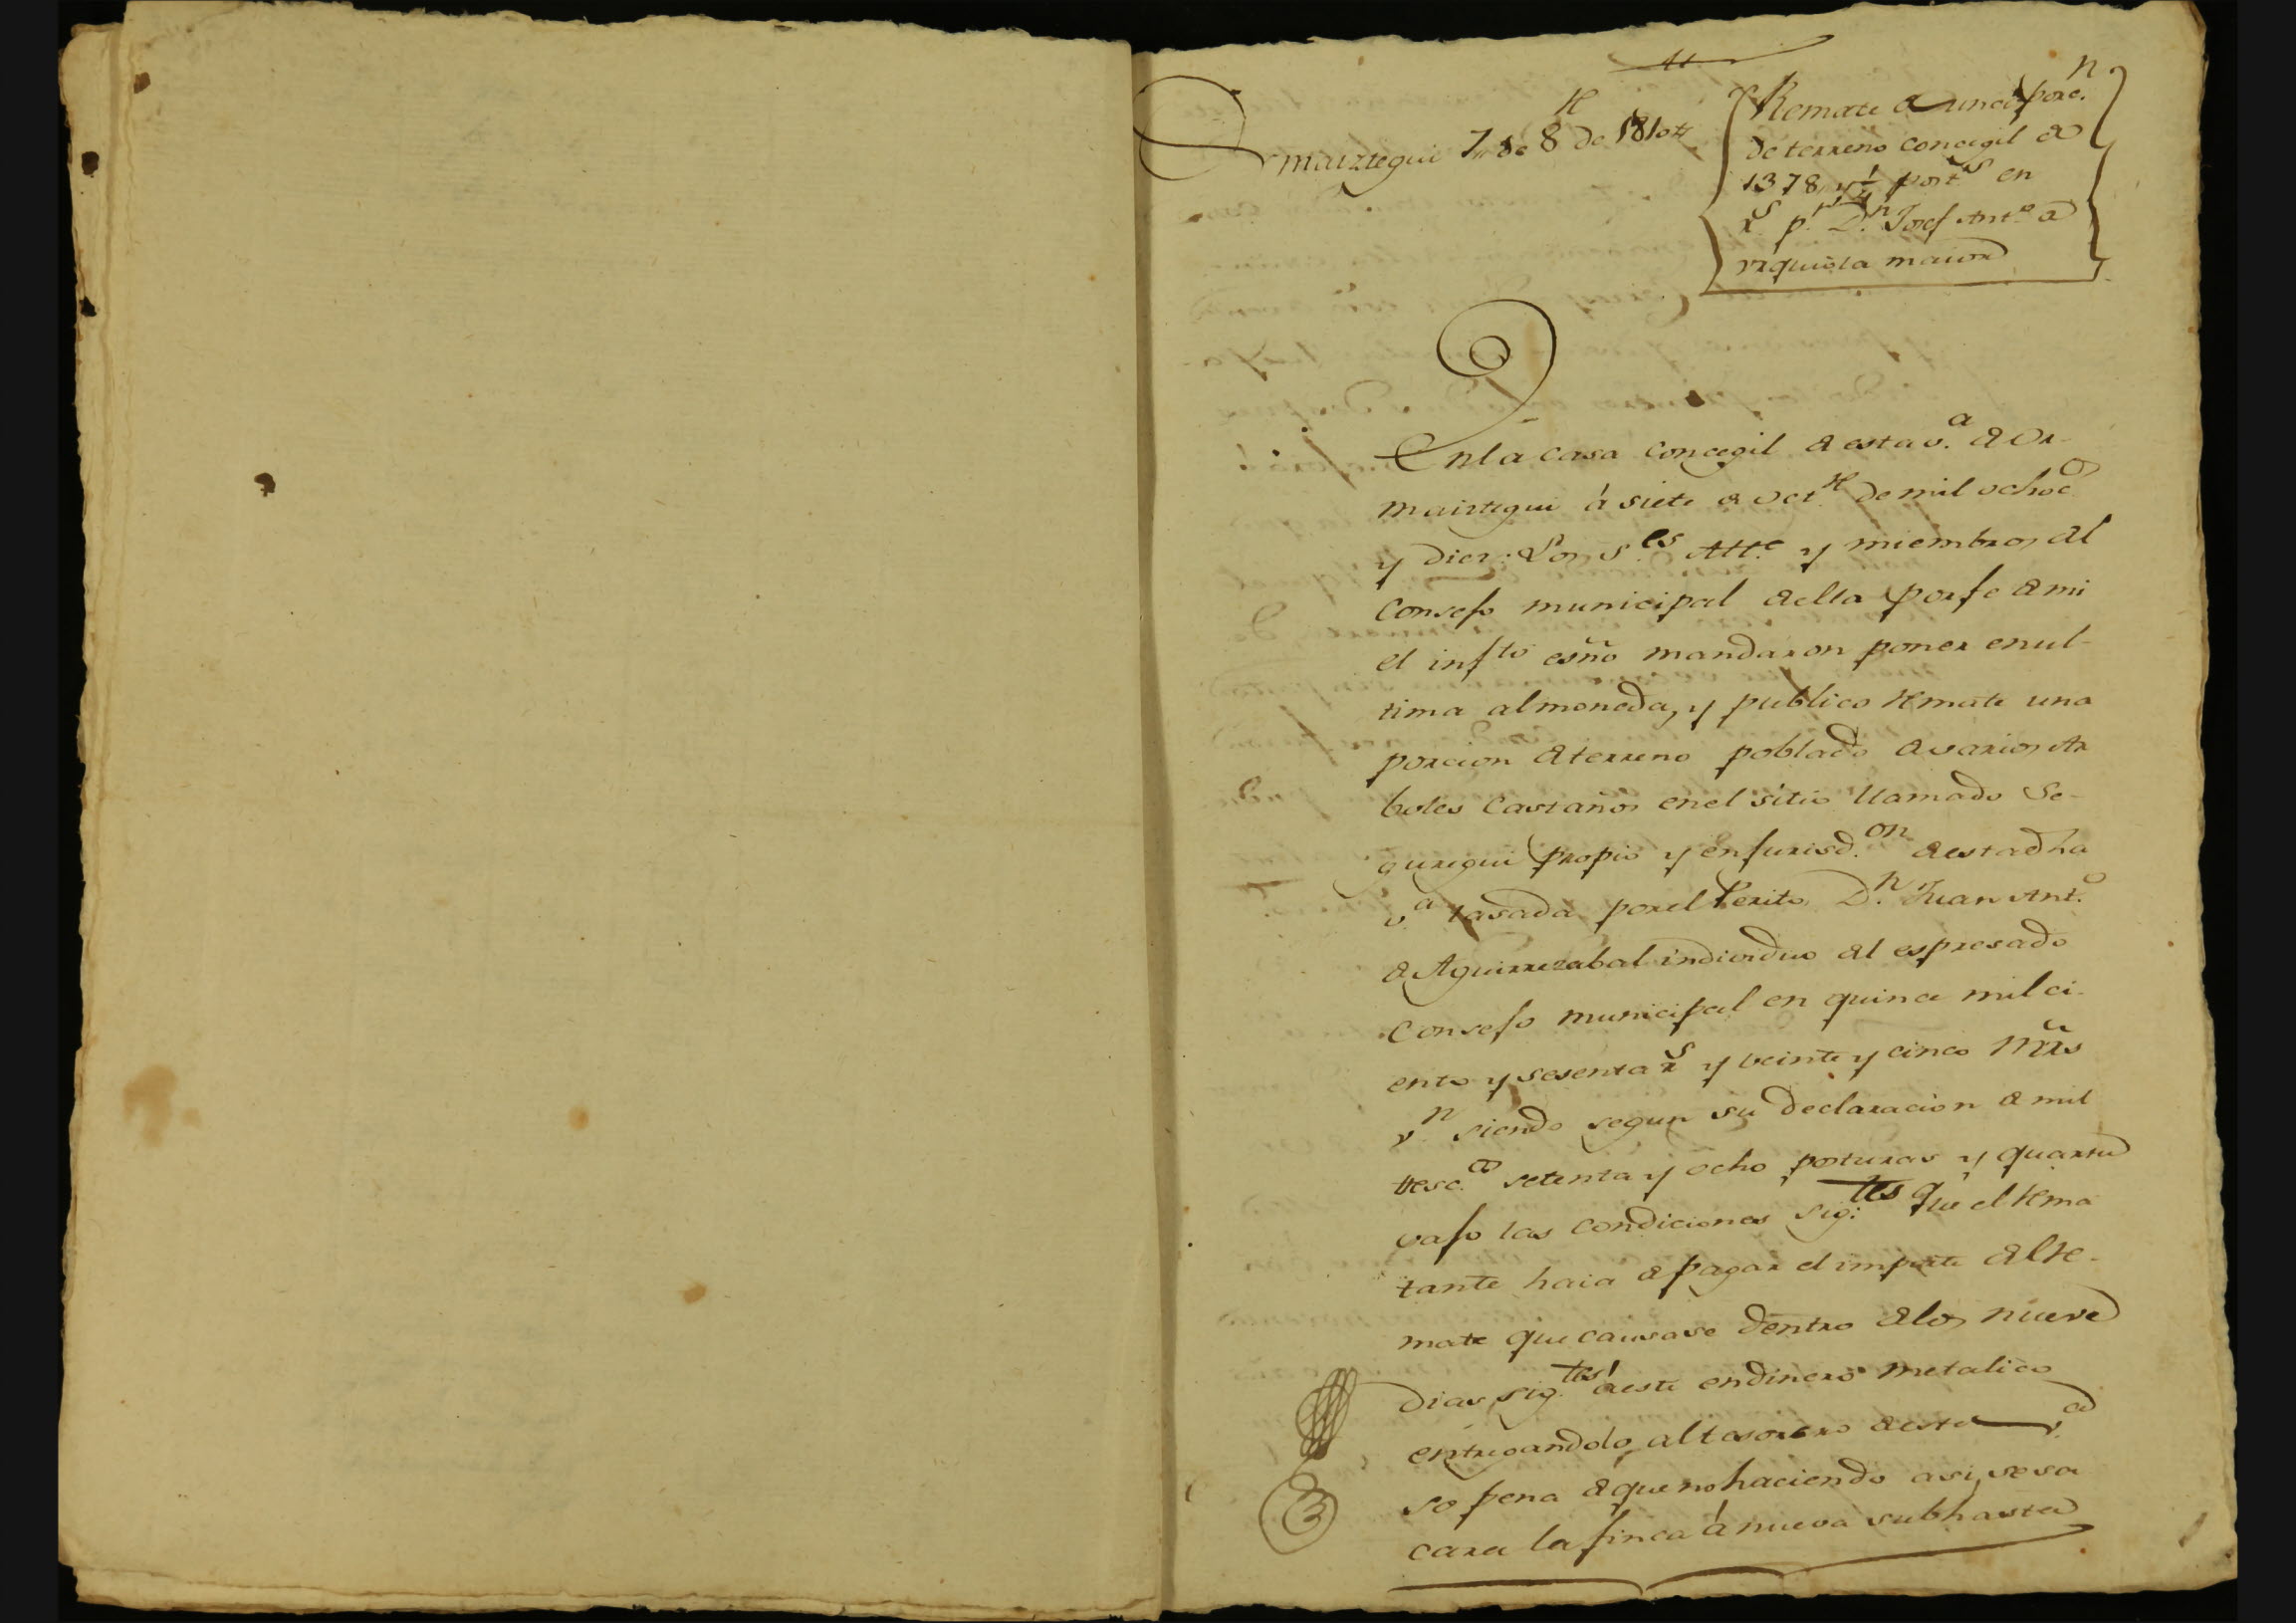 Ormaiztegui 7,, de 8.re de 1810,,
Remate de una porc.n
de terreno concegil de
1378,, y 1/4 post.s en
r.s p.r D.n Josef Ant.o de
Vrquiola maior
En la casa concegil de esta v.a de Or-
maiztegui á siete de oct.re de mil ochoc.s
y diez: Los S.es Alt.e y miembros del
Consejo municipal de ella por fe de mi
el infto esño mandaron poner en ul-
tima almoneda, y publico remate una
porcion de terreno poblado de varios Ar
boles Castaños en el sitio llamado Se-
guregui propio y en jurisd.on de esta dha
v.a tasada por el Perito D.n Juan Ant.o
de Aguirrezabal individuo del espresado
Consejo municipal en quince mil ci-
ento y sesenta r.s y veinte y cinco mrs
v.n siendo segun su declaracion de mil
tresc.os setenta y ocho posturas y quarta
vajo las condiciones sig.tes que el rema
tante haia de pagar el importe del re-
mate que causase dentro de los nueve
Dias sig.tes á este en dinero metalico
entregandolo al tesorero de esta v.a
so pena de que no haciendo asi, se sa
cara la finca á nueva subhasta